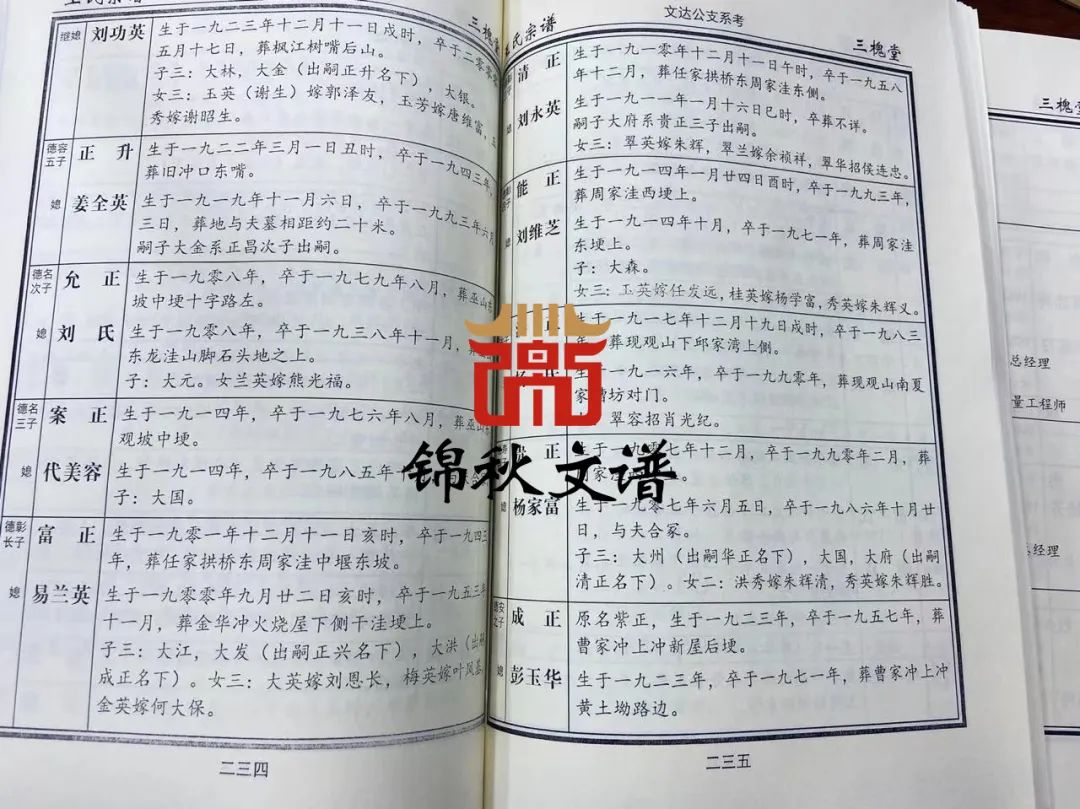 王氏宗谱
三槐堂
继媳
刘功英
生于一九二三年十二月十一日戌时，卒于二零零
五月十七日，葬枫江树嘴后山。
子三：大林，大金（出嗣正升名下），大银。
女三：玉英（谢生）嫁郭泽友，玉芳嫁唐维富，玉
秀嫁谢昭生。
德容五子
正升
生于一九二二年三月一日丑时，卒于一九四三年，
葬旧冲口东嘴。
媳
姜全英
生于一九一九年十一月六日，卒于一九九三年六月
三日，葬地与夫墓相距约二十米。
嗣子大金系正昌次子出嗣。
德名次子
允正
生于一九零八年，卒于一九七九年八月，葬巫山
坡中埂十字路左。
媳
刘氏
生于一九零八年，卒于一九三八年十一月，葬
东龙洼山脚石头地之上。
子：大元。女兰英嫁熊光福。
德名三子
案正
生于一九一四年，卒于一九七六年八月，葬巫山
观坡中埂。
媳
代美容
生于一九一四年，卒于一九八五年
子：大国。
德彰长子
富正
生于一九零一年十二月十一日亥时，卒于一九四三
年，葬任家拱桥东周家洼中堰东坡。
媳
易兰英
生于一九零零年九月廿二日亥时，卒于一九五三年
十一月，葬金华冲火烧屋下侧干洼埂上。
子三：大江，大发（出嗣正兴名下），大洪（出嗣
成正名下）。女三：大英嫁刘恩长，梅英嫁叶凤基，
金英嫁何大保。
二三四
氏宗谱
文达公支系考
三槐堂
清正
生于一九一零年十二月十一日午时，卒于一九五八
年十二月，葬任家拱桥东周家洼东侧。
媳
刘永英
生于一九一一年一月十六日巳时，卒葬不详。
嗣子大府系贵正三子出嗣。
女三：翠英嫁朱辉，翠兰嫁余祯祥，翠华招侯连忠。
能正
生于一九一四年一月廿四日酉时，卒于一九九三年，
葬周家洼西埂上。
媳
刘维芝
生于一九一四年十月，卒于一九七一年，葬周家洼
东埂上。
子：大森。
女三：玉英嫁任发远，桂英嫁杨学富，秀英嫁朱辉义。
正
生于一九一七年十二月十九日戌时，卒于一九八三
年，葬现观山下邱家湾上侧。
氏
生于一九一六年，卒于一九九零年，葬现观山南夏
家塘坊对门。
翠容招肖光纪。
贵正
生于一九零七年十二月，卒于一九九零年二月，葬
媳
杨家富
生于一九零七年六月五日，卒于一九八六年十月廿
日，与夫合冢。
子三：大州（出嗣华正名下），大国，大府（出嗣
清正名下）。女二：洪秀嫁朱辉清，秀英嫁朱辉胜。
德安之子
成正
原名紫正，生于一九二三年，卒于一九五七年，葬
曹家冲上冲新屋后埂。
媳
彭玉华
生于一九二三年，卒于一九七一年，葬曹家冲上冲
黄土坳路边。
二三五
锦秋文谱
三槐堂
总经理
量工程师
总经理